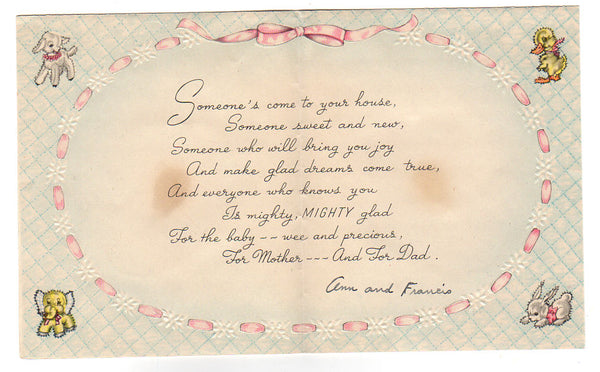 Someone's come to your house,
Someone sweet and new,
Someone who will bring you joy
And make glad dreams come true,
And everyone who knows you
Is mighty, MIGHTY glad
For the baby -- wee and precious,
For Mother --- And For Dad.
Ann and Francis